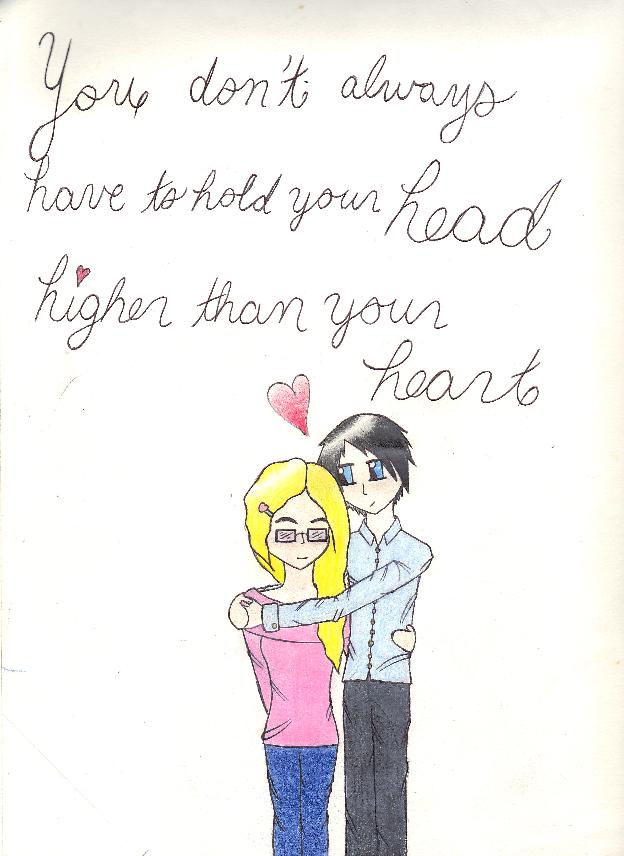 You don't always
have to hold your head
higher than your
heart